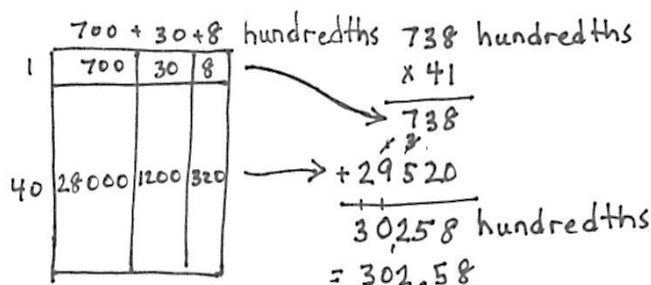 700 + 30 + 8 hundredths
1 700 30 8
40 28000 1200 320
738 hundredths
x 41
738
+ 29520
30,258 hundredths
= 302.58